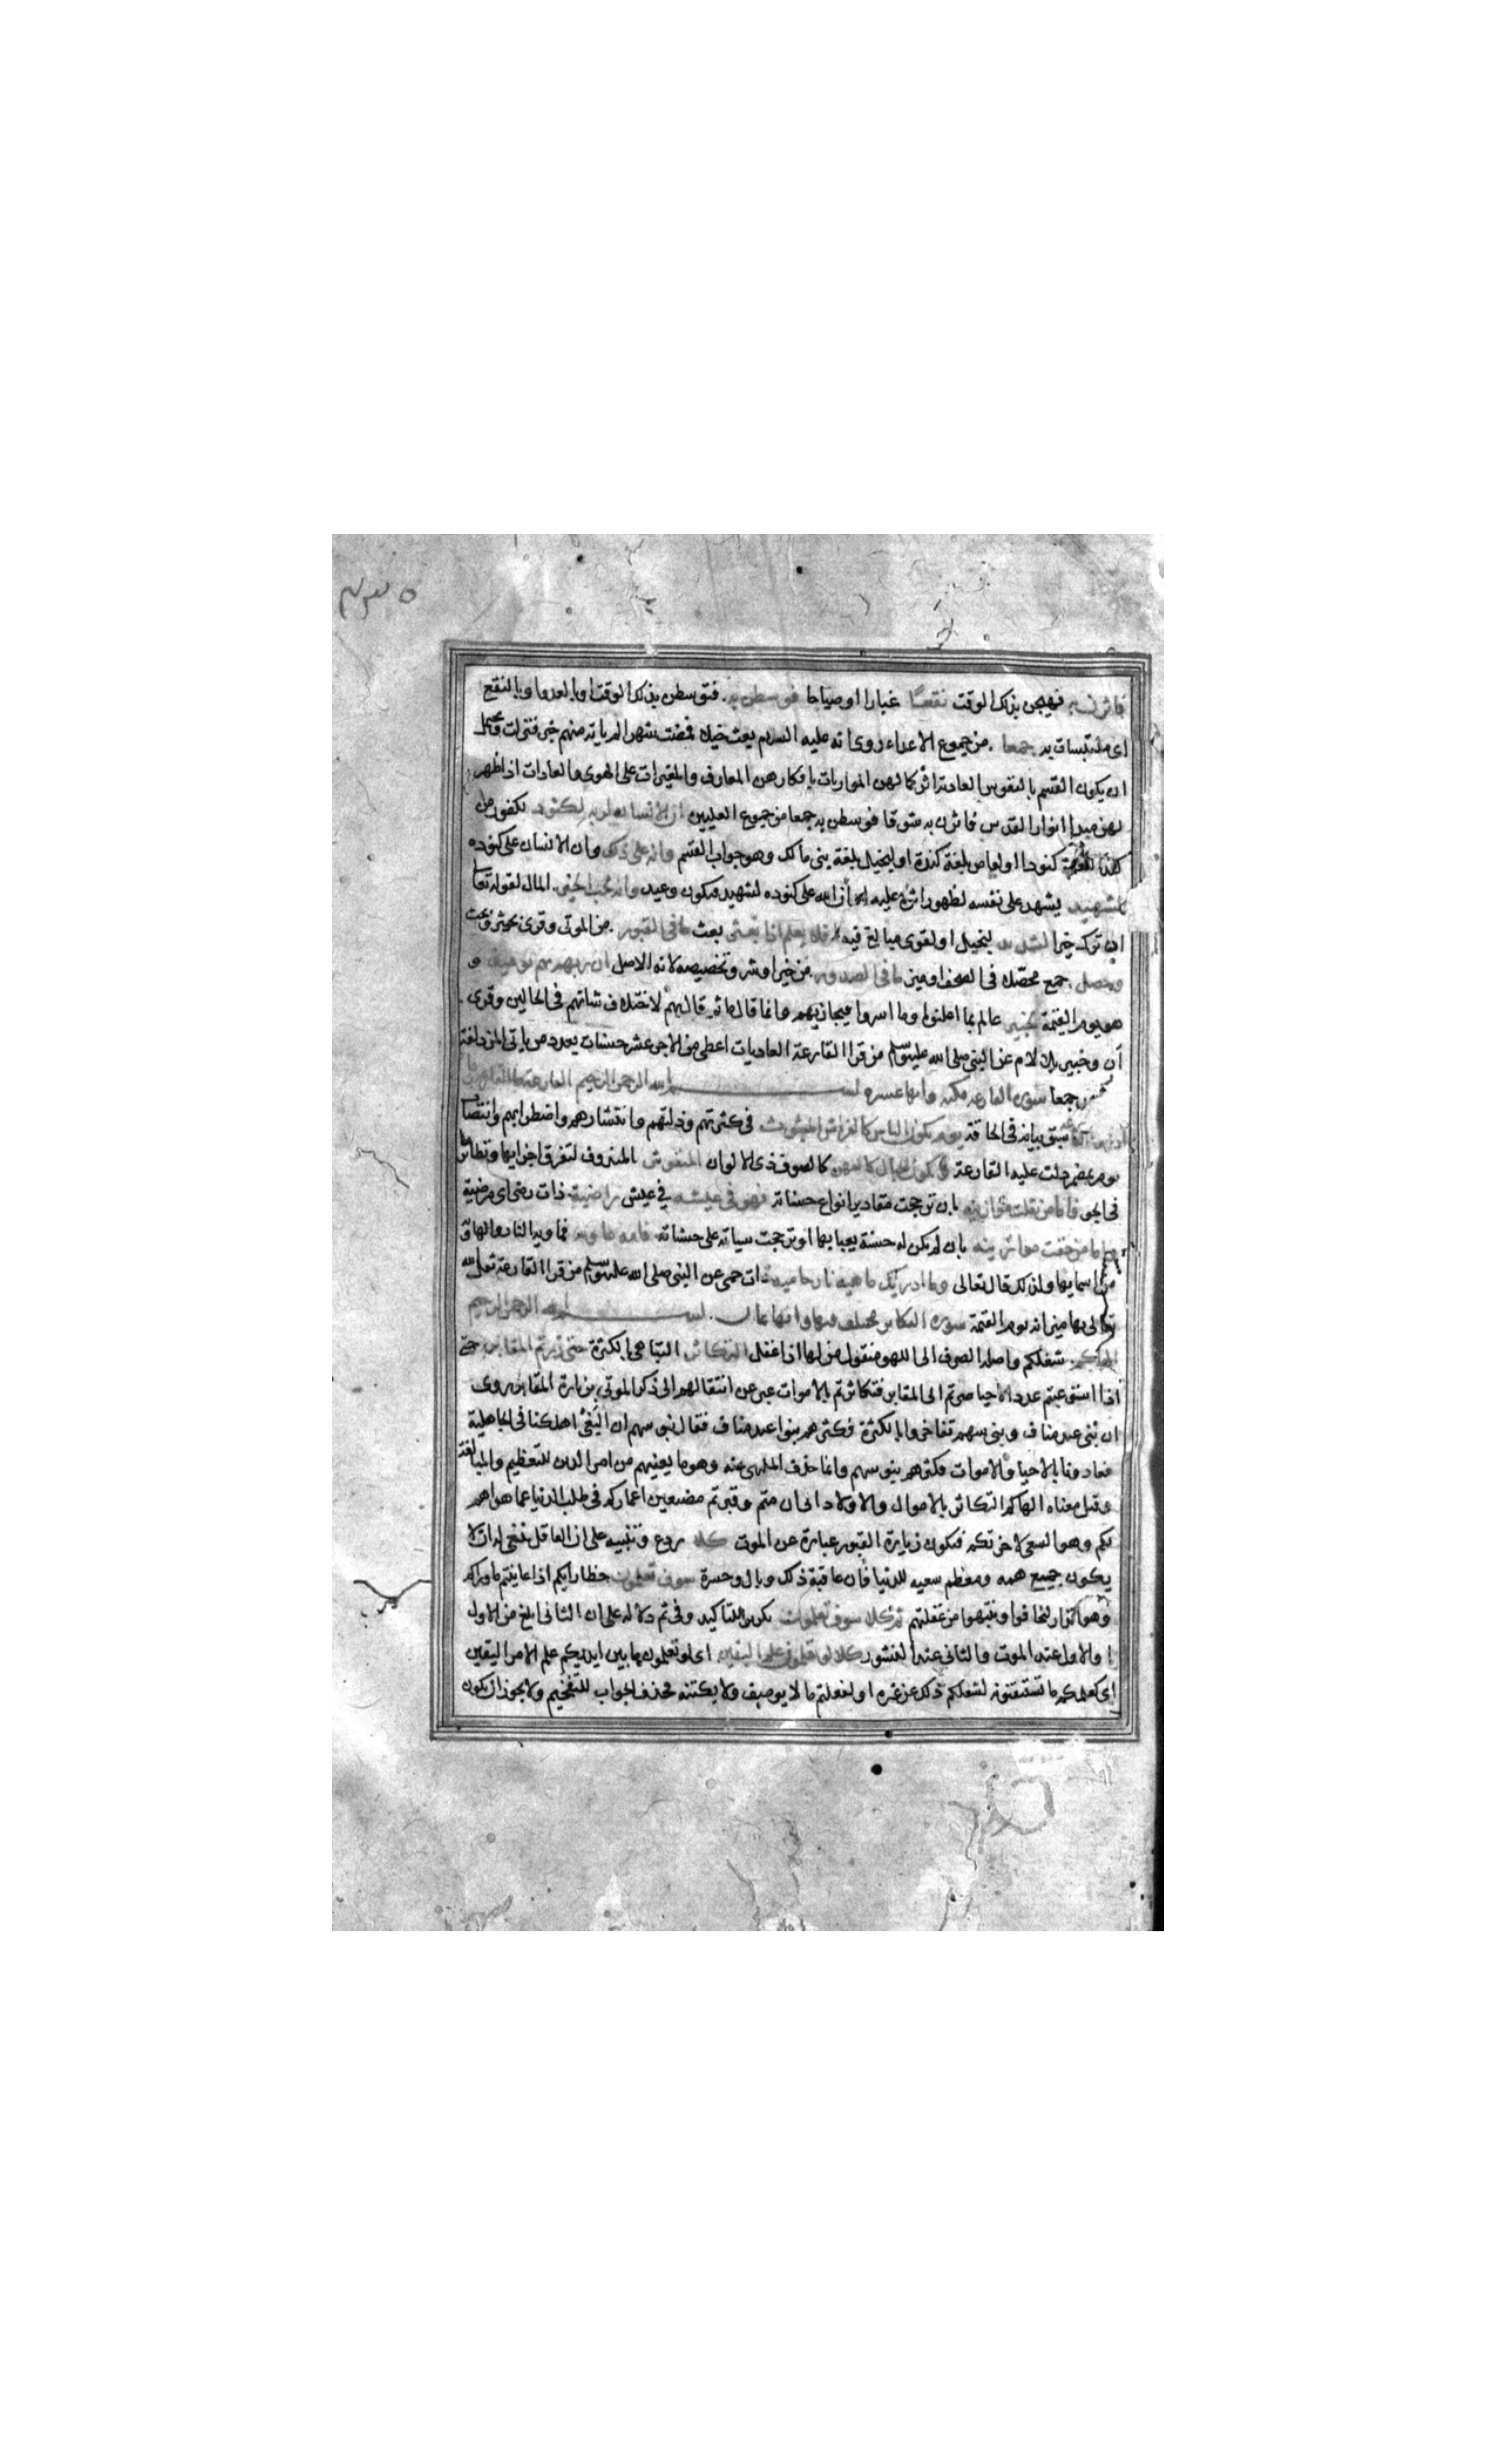 فاثرن به فهيجن بذلك الوقت نقعا غبارا اوصياحا فوسطن به فتوسطن بذلك الوقت اوبالعدوا وبالنقع
اى ملتبسات به جمعا من جموع الاعداء روى انه عليه السلام بعث خيلا فمضت شهر لم ياته منهم خبر فنزلت
ان يكون القسم بالنفوس العادية اثر كمالهن الموريات بافكارهن المعارف والمغيرات على الهوى والعادات اذا ظهر
لهن مبدا انوار القدس فاثرن به شوقا فوسطن به جمعا من جموع العليين ان الانسان لربه لكنود لكفور من
كند النعمة كنودا اولعاص بلغة كندة اولبخيل بلغة بنى مالك وهو جواب القسم وانه على ذلك وان الانسان على كنوده
لشهيد يشهد على نفسه لظهور اثره عليه او ان الله على كنوده لشهيد فيكون وعيد وانه لحب الخير المال لقوله تعالى
ان ترك خيرا لشديد لبخيل اولقوى مبالغ فيه افلا يعلم اذا بعثر بعث ما فى القبور من الموتى وقرى بحثر وبحث
وحصل جمع محصلا فى الصحف اوميز ما فى الصدور من خير اوشر وتخصيصه لانه الاصل ان ربهم بهم يومئذ و
هو يوم القيمة لخبير عالم بما اعلنوا وما اسروا فيجازيهم وانما قال ما ثم قال بهم لاختلاف شانهم فى الحالين وقرى
ان وخبير بلا لام عن النبى صلى الله عليه وسلم من قرا القارعة العاديات اعطى من الاجر عشر حسنات بعدد من بات المزدلفة
جمعا سورة القارعة مكية وايها عشرة بسم الله الرحمن الرحيم القارعة ما القارعة
سبق بيانه فى الحاقة يوم يكون الناس كالفراش المبثوث فى كثرتهم وذلتهم وانتشارهم واضطرابهم وانتصاب
يوم بمضمر دلت عليه القارعة وتكون الجبال كالعهن كالصوف ذى الالوان المنفوش المندوف لتفرق اجزايها وتطايرها
فى الجو فاما من ثقلت موازينه بان ترجحت مقادير انواع حسناته فهو فى عيشة فى عيش راضية ذات رضى اى مرضية
واما من خفت موازينه بان لم يكن له حسنة يعبا بها اوترجحت سياته على حسناته فامه هاوية فماويه النار والهاوية
من اسمايها ولذلك قال تعالى وما ادريك ماهيه نار حامية ذات حمى عن النبى صلى الله عليه وسلم من قرا القارعة ثقل الله
تعالى بها ميزانه يوم القيمة سورة التكاثر مختلف فيها وايها ثمان بسم الله الرحمن الرحيم
الهاكم شغلكم واصله الصرف الى اللهو منقول من لها اذا غفل التكاثر التباهى بالكثرة حتى زرتم المقابر حتى
اذا استوعبتم عدد الاحيا صرتم الى المقابر فتكاثرتم بالاموات عبر عن انتقالهم الى ذكر الموتى بزيارة المقابر روى
ان بنى عبد مناف وبنى سهم تفاخروا بالكثرة فكثرهم بنوا عبد مناف فقال بنو سهم ان البغى اهلكنا فى الجاهلية
فعادونا بالاحيا والاموات فكثرهم بنو سهم وانما حذف الملهى عنه وهو ما يعنيهم من امر الدين للتعظيم والمبالغة
وقيل معناه الهاكم التكاثر بالاموال والاولاد الى ان متم وقبرتم مضيعين اعماركم فى طلب الدنيا عما هو اهم
لكم وهو السعى لاخرتكم فيكون زيارة القبور عبارة عن الموت كلا ردع وتنبيه على ان العاقل ينبغى له ان لا
يكون جميع همه ومعظم سعيه للدنيا فان عاقبة ذلك وبال وحسرة سوف تعلمون خطا رايكم اذا عاينتم ماوراكم
وهو انذار ليخافوا وينتبهوا من غفلتهم ثم كلا سوف تعلمون تكرير للتاكيد وفى ثم دلالة على ان الثانى ابلغ من الاول
او الاول عند الموت والثانى عند النشور كلا لو تعلمون علم اليقين اى لو تعلمون ما بين ايديكم علم الامر اليقين
اى كعلمكم ما تستيقنونه لشغلكم ذلك عن غيره اولفعلتم ما لا يوصف ولا يكتنه فحذف الجواب للتفخيم ولا يجوز ان يكون